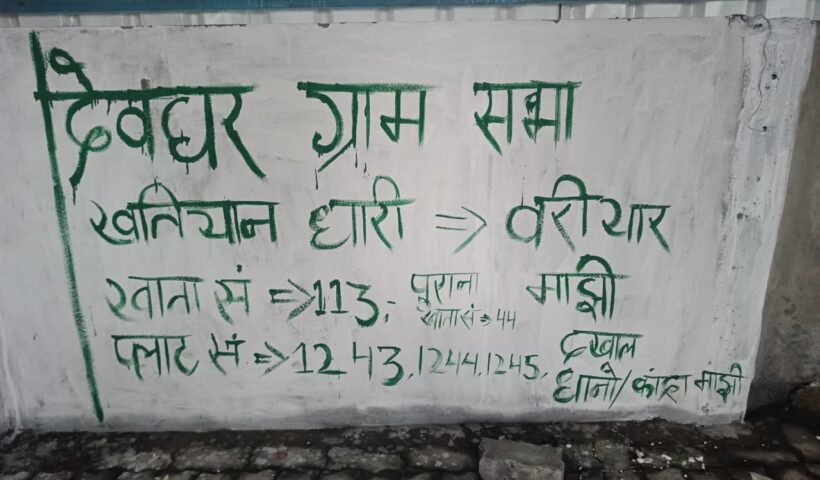 देवघर ग्राम सभा
खतियान धारी => वरीयार माझी
खाता सं => 113,- पुराना खाता सं => 44
प्लाट सं => 1243, 1244, 1245, दखल
धानो/कांद्रा माझी